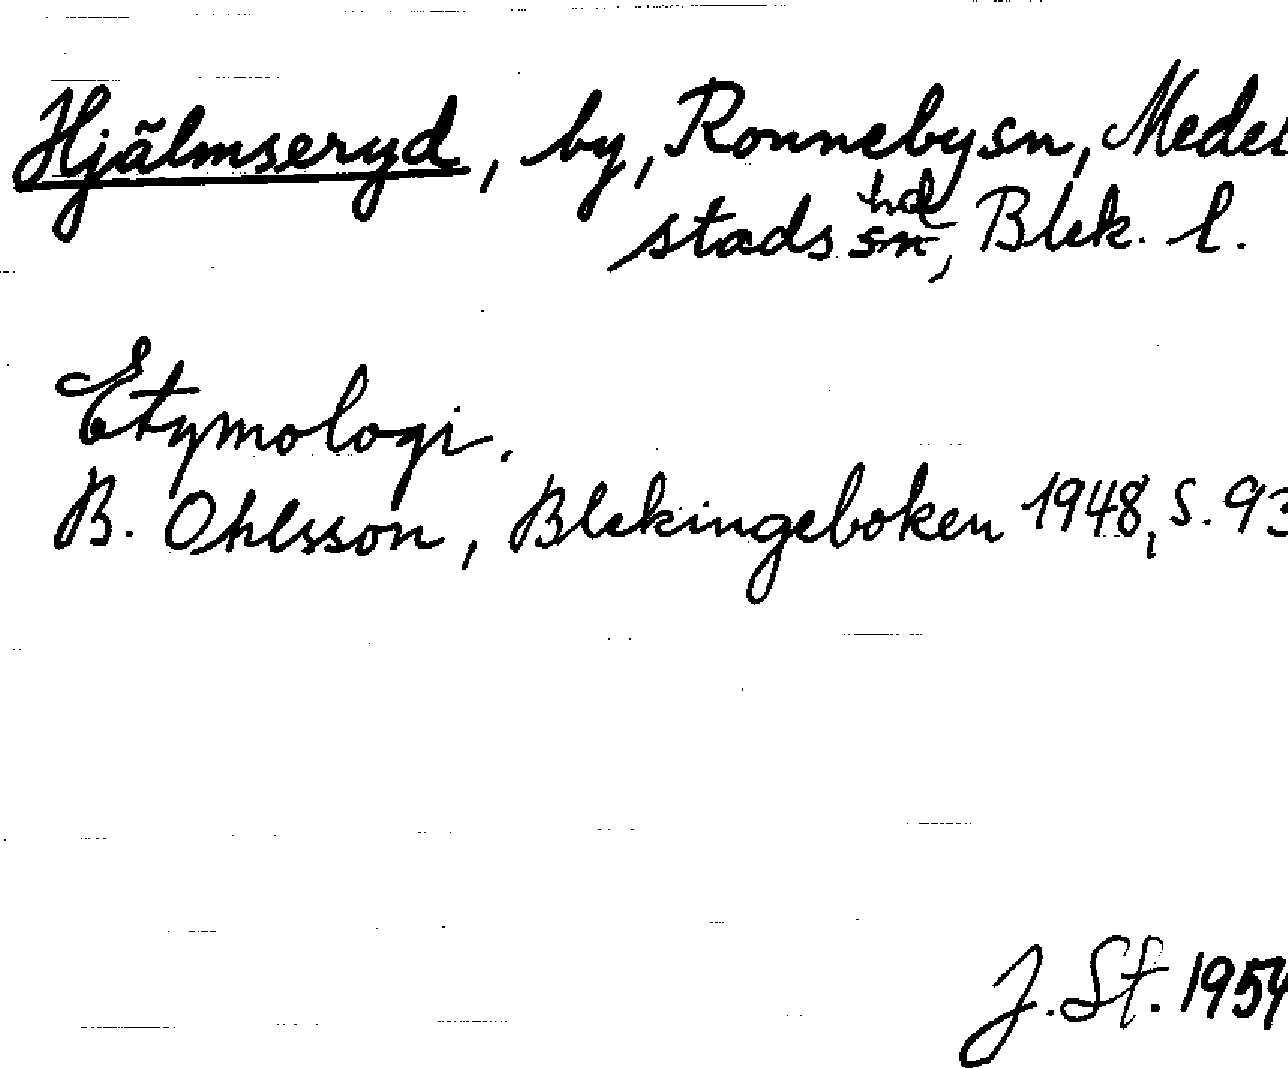 Hjälmseryd, by, Ronneby sn, Medel
stads hd, Blek. l.
Etymologi.
B. Ohlsson, Blekingeboken 1948, s. 93
J. St. 1954